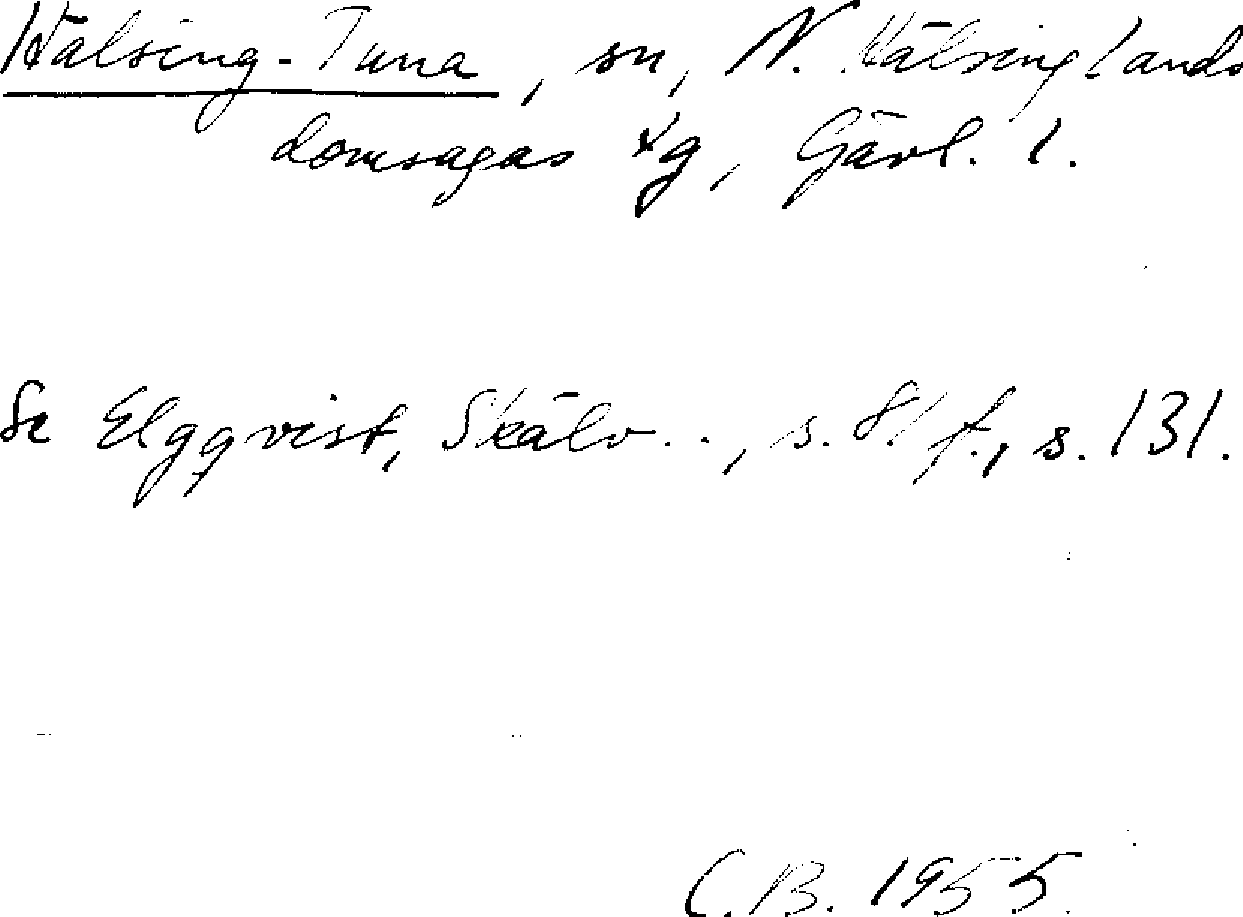 Hälsing-Tuna, sn, N. Hälsinglands
domsagas tg, Gävl. l.
Se Elgqvist, Skälv.., s. 81 f., s. 131.
C.B. 1955